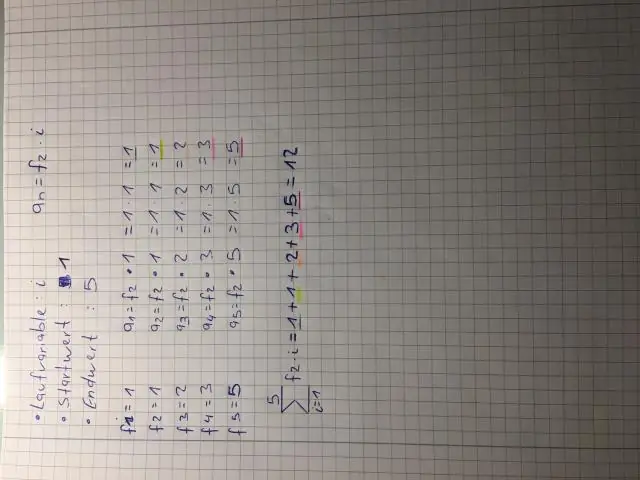 • Laufvariable : i an = f2 · i
• Startwert : 1
• Endwert : 5
f1 = 1 a1 = f2 · 1 = 1 · 1 = 1
f2 = 1 a2 = f2 · 1 = 1 · 1 = 1
f3 = 2 a3 = f2 · 2 = 1 · 2 = 2
f4 = 3 a4 = f2 · 3 = 1 · 3 = 3
f5 = 5 a5 = f2 · 5 = 1 · 5 = 5
5
∑ f2 · i = 1 + 1 + 2 + 3 + 5 = 12
i=1